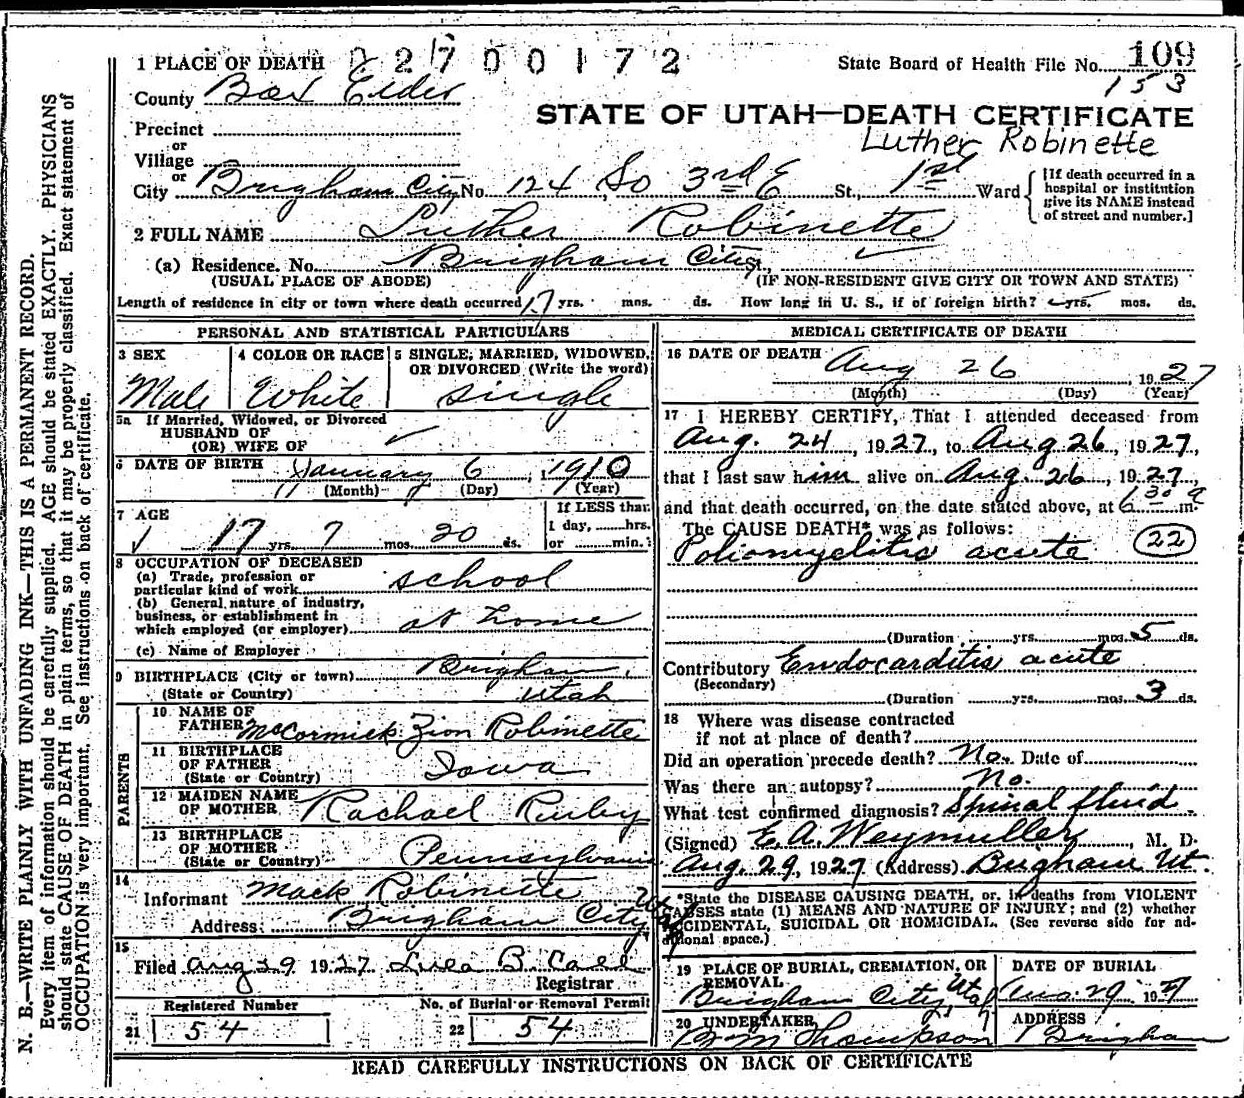 1 PLACE OF DEATH 22700172
State Board of Health File No. 109
153
County Box Elder
STATE OF UTAH—DEATH CERTIFICATE
Precinct
Luther Robinette
or
Village
or
City Brigham City No. 124 So 3rd E St., 1st Ward
[If death occurred in a
hospital or institution
give its NAME instead
of street and number.]
2 FULL NAME Luther Robinette
(a) Residence. No. Brigham City St.,
(USUAL PLACE OF ABODE) (IF NON-RESIDENT GIVE CITY OR TOWN AND STATE)
Length of residence in city or town where death occurred 17 yrs. mos. ds. How long in U. S., if of foreign birth? yrs. mos. ds.
PERSONAL AND STATISTICAL PARTICULARS
3 SEX 4 COLOR OR RACE 5 SINGLE, MARRIED, WIDOWED,
OR DIVORCED (Write the word)
Male White single
5a If Married, Widowed, or Divorced
HUSBAND OF
(OR) WIFE OF
6 DATE OF BIRTH January 6, 1910
(Month) (Day) (Year)
7 AGE If LESS than
1 day, hrs.
17 yrs. 7 mos. 20 ds. or min.
8 OCCUPATION OF DECEASED
(a) Trade, profession or
particular kind of work school
(b) General nature of industry,
business, or establishment in
which employed (or employer) at home
(c) Name of Employer
9 BIRTHPLACE (City or town) Brigham
(State or Country) Utah
PARENTS
10 NAME OF
FATHER McCormick Zion Robinette
11 BIRTHPLACE
OF FATHER
(State or Country) Iowa
12 MAIDEN NAME
OF MOTHER Rachael
13 BIRTHPLACE
OF MOTHER
(State or Country) Pennsylvania
14
Informant Mack Robinette
Address: Brigham City Utah
15
Filed Aug 29 1927 B
Registrar
Registered Number No. of Burial or Removal Permit
21 54 22 54
MEDICAL CERTIFICATE OF DEATH
16 DATE OF DEATH Aug 26, 1927
(Month) (Day) (Year)
17 I HEREBY CERTIFY, That I attended deceased from
Aug. 24, 1927, to Aug 26, 1927,
that I last saw him alive on Aug. 26, 1927,
and that death occurred, on the date stated above, at 6 30 a m.
The CAUSE DEATH* was as follows:
Poliomyelitis acute 22
(Duration yrs. mos. 5 ds.
Contributory Endocarditis acute
(Secondary)
(Duration yrs. mos. 3 ds.
18 Where was disease contracted
if not at place of death?
Did an operation precede death? No. Date of
Was there an autopsy? No.
What test confirmed diagnosis? Spinal fluid
(Signed) E. A. Weymuller, M. D.
Aug. 29, 1927 (Address) Brigham Ut.
*State the DISEASE CAUSING DEATH, or, in deaths from VIOLENT
CAUSES state (1) MEANS AND NATURE OF INJURY; and (2) whether
ACCIDENTAL, SUICIDAL OR HOMICIDAL. (See reverse side for ad-
ditional space.)
19 PLACE OF BURIAL, CREMATION, OR
REMOVAL
Brigham City Utah
DATE OF BURIAL
Aug. 29, 1927
20 UNDERTAKER
Thompson
ADDRESS
Brigham
READ CAREFULLY INSTRUCTIONS ON BACK OF CERTIFICATE
N. B.—WRITE PLAINLY WITH UNFADING INK—THIS IS A PERMANENT RECORD.
Every item of information should be carefully supplied. AGE should be stated EXACTLY. PHYSICIANS
should state CAUSE OF DEATH in plain terms, so that it may be properly classified. Exact statement of
OCCUPATION is very important. See instructions on back of certificate.